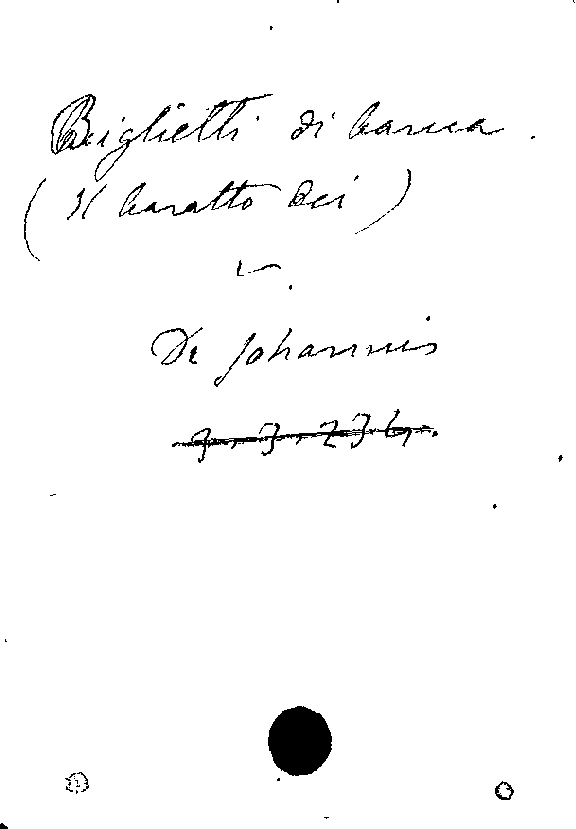 Biglietti di banca.
(Il baratto dei)
v.
De Johannis
3.3.236.